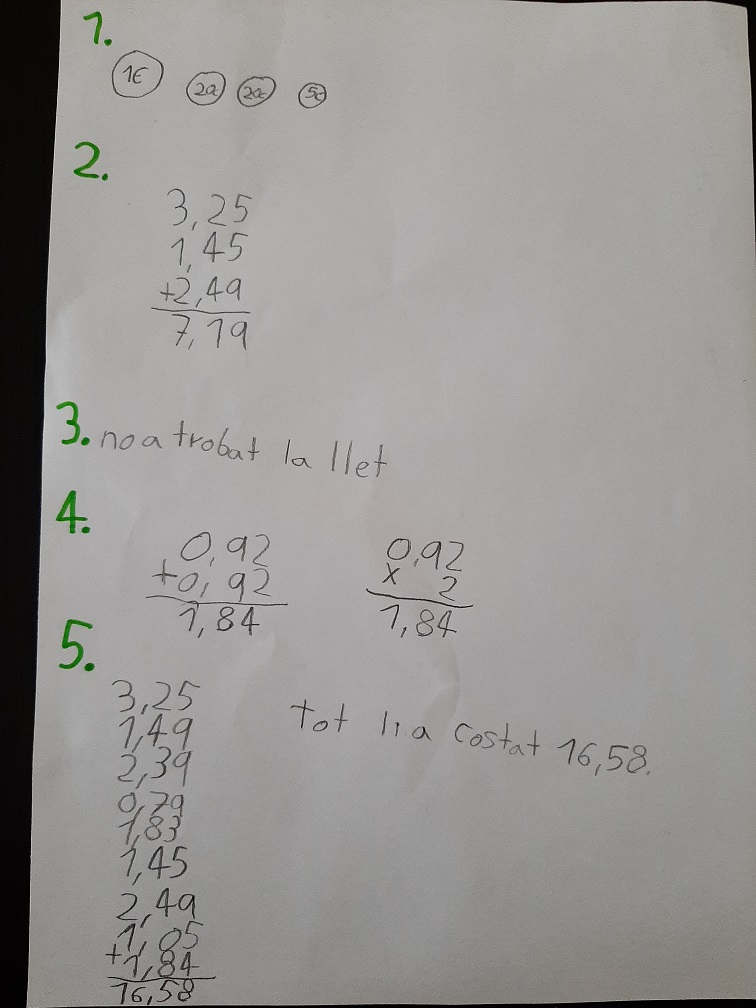 1.
1€ 20c 20c 5c
2.
3,25
1,45
+2,49
7,19
3. no a trobat la llet
4.
0,92 0,92
+0,92 x 2
1,84 1,84
5.
3,25
1,49 tot li a costat 16,58.
2,39
0,79
1,83
1,45
2,49
1,05
+1,84
16,58